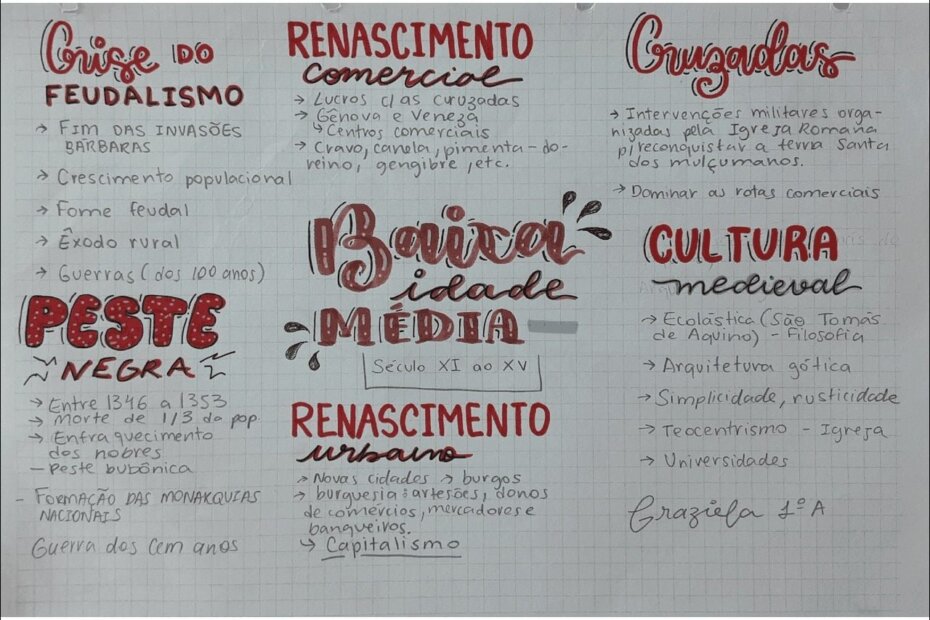 Crise DO
FEUDALISMO
→ FIM DAS INVASÕES
BÁRBARAS
→ Crescimento populacional
→ Fome feudal
→ Êxodo rural
→ Guerras (dos 100 anos)
PESTE
NEGRA
→ Entre 1346 a 1353
→ Morte de 1/3 da pop.
→ Enfraquecimento
dos nobres
— Peste bubônica
- FORMAÇÃO DAS MONARQUIAS
NACIONAIS
Guerra dos Cem anos
RENASCIMENTO
comercial
→ Lucros c/ as curuzadas
→ Gênova e Veneza
↳ Centros comerciais
→ Cravo, canela, pimenta-do-
reino, gengibre, etc.
Baixa
idade
MÉDIA
Século XI ao XV
RENASCIMENTO
urbano
→ Novas cidades → burgos
→ burguesia: artesões, donos
de comércios, mercadores e
banqueiros.
↳ Capitalismo
Cruzadas
→ Intervenções militares orga-
nizadas pela Igreja Romana
p/ reconquistar a terra Santa
dos mulçumanos.
→ Dominar as rotas comerciais
CULTURA
medieval
→ Ecolástica (São Tomás
de Aquino) - Filosofia
→ Arquitetura gótica
→ Simplicidade, rusticidade
→ Teocentrismo - Igreja
→ Universidades
Graziela 1º A